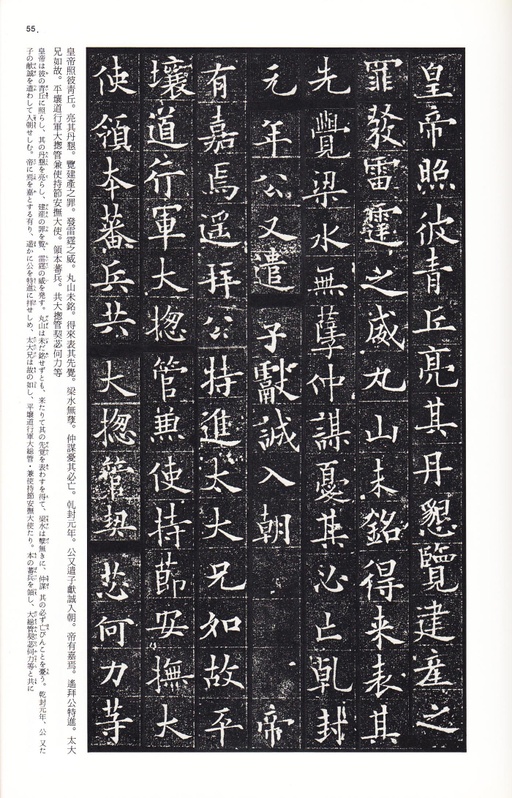 55.
皇帝照彼青丘亮其丹懇覽建産之
罪發雷霆之威丸山未銘得来表其
先覺梁水無孽仲謀憂其必亡乹封
元年公又遣子獻誠入朝帝
有嘉焉遥拜公特進太大兄如故平
壤道行軍大揔管兼使持莭安撫大
使領本蕃兵共大揔管契苾何力䓁
皇帝照彼青丘。亮其丹懇。覽建產之罪。發雷霆之威。丸山未銘。得來表其先覺。梁水無孽。仲謀憂其必亡。乹封元年。公又遣子獻誠入朝。帝有嘉焉。遙拜公特進。太大
兄如故。平壤道行軍大揔管兼使持節安撫大使。領本蕃兵。共大揔管契苾何力等
皇帝は彼の青丘に照らし、其の丹懇を亮らし、建產の罪を覽、雷霆の威を発す。丸山は未だ銘せずとも、来たりて其の先覚を表わすを得て、梁水は孽無きに、仲謀、其の必ず亡びんことを憂う。乾封元年、公又た
子の献誠を遣わして入朝せしむ。帝に焉を嘉とする有り、遥かに公を特進に拝せしめ、太大兄は故の如し、平壌道行軍大総管・兼使持節安撫大使たり。本の蕃兵を領し、大総管契苾何力等と共に